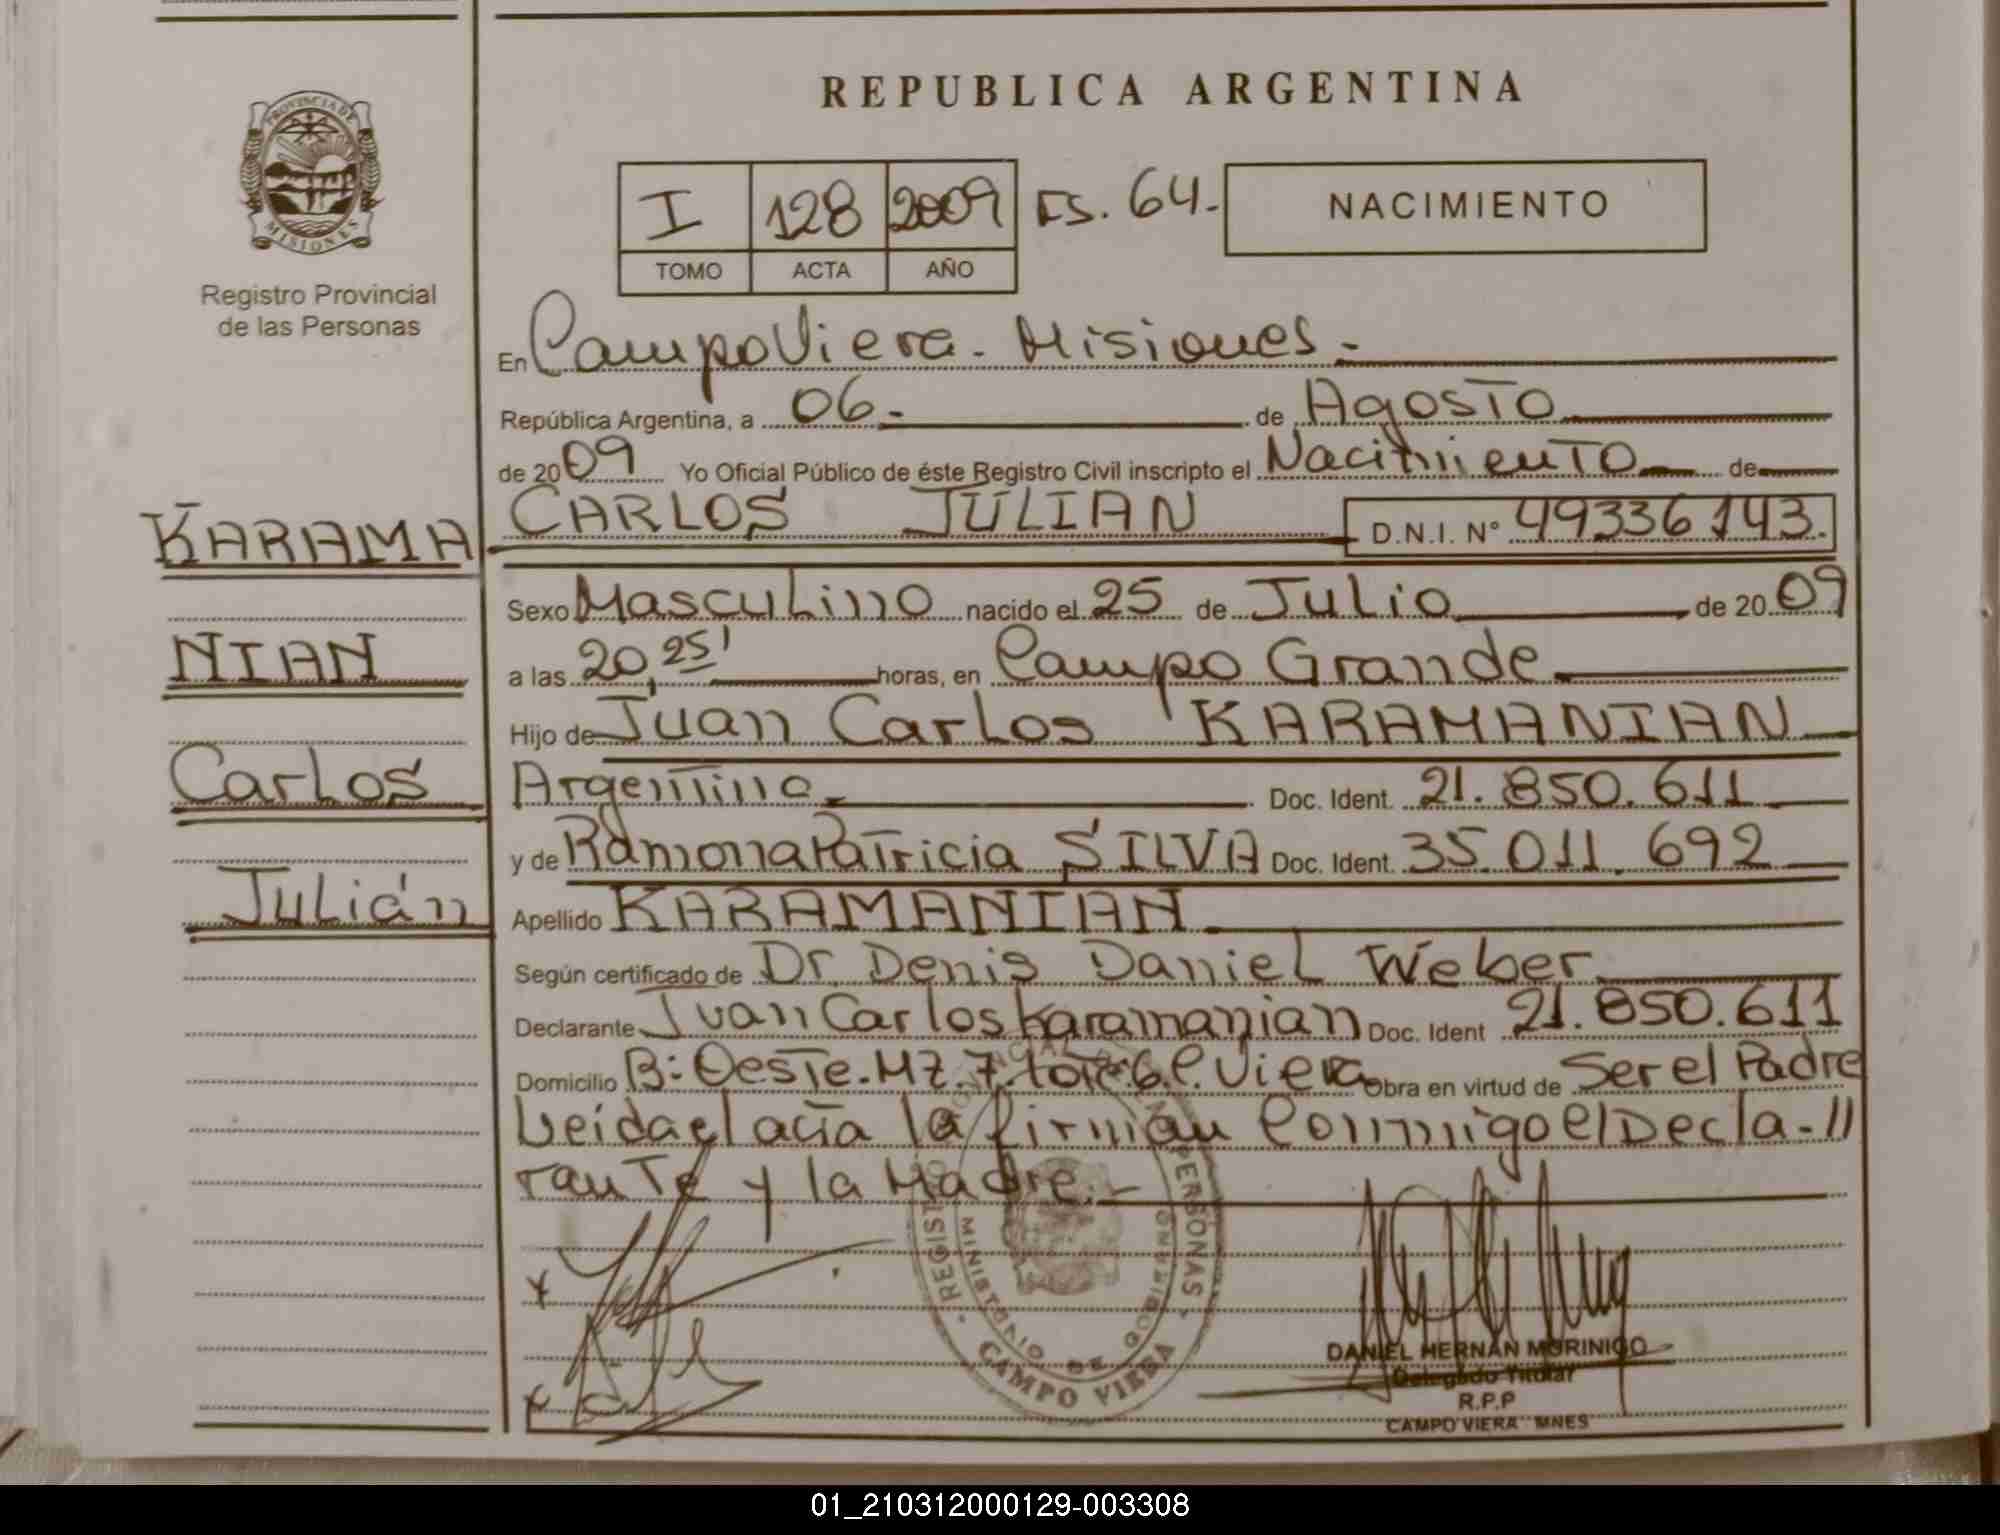 REPUBLICA ARGENTINA
PROVINCIA DE
MISIONES
Registro Provincial
de las Personas
I 128 2009 FS. 64.-
TOMO ACTA AÑO
NACIMIENTO
KARAMA
NIAN
Carlos
Julián
En Campo Viera - Misiones.-
República Argentina, a 06.- de Agosto
de 2009 Yo Oficial Público de éste Registro Civil inscripto el Nacimiento de
CARLOS JULIAN D.N.I. Nº 49336143.
Sexo Masculino nacido el 25 de Julio de 2009
a las 20,25' horas, en Campo Grande
Hijo de Juan Carlos KARAMANIAN
Argentino Doc. Ident. 21.850.611
y de Ramona Patricia SILVA Doc. Ident. 35.011.692
Apellido KARAMANIAN
Según certificado de Dr. Denis Daniel Weber
Declarante Juan Carlos Karamanian Doc. Ident 21.850.611
Domicilio B: Oeste. MZ. 7. Lote 6. C. Viera Obra en virtud de Ser el Padre
Leída el acta la firman Conmigo el Decla-//
rante y la Madre.-
REGISTRO PERSONAS
MINISTERIO DE GOBIERNO
CAMPO VIERA
DANIEL HERNÁN MORINIGO
Delegado Titular
R.P.P
CAMPO VIERA - MNES
01_210312000129-003308